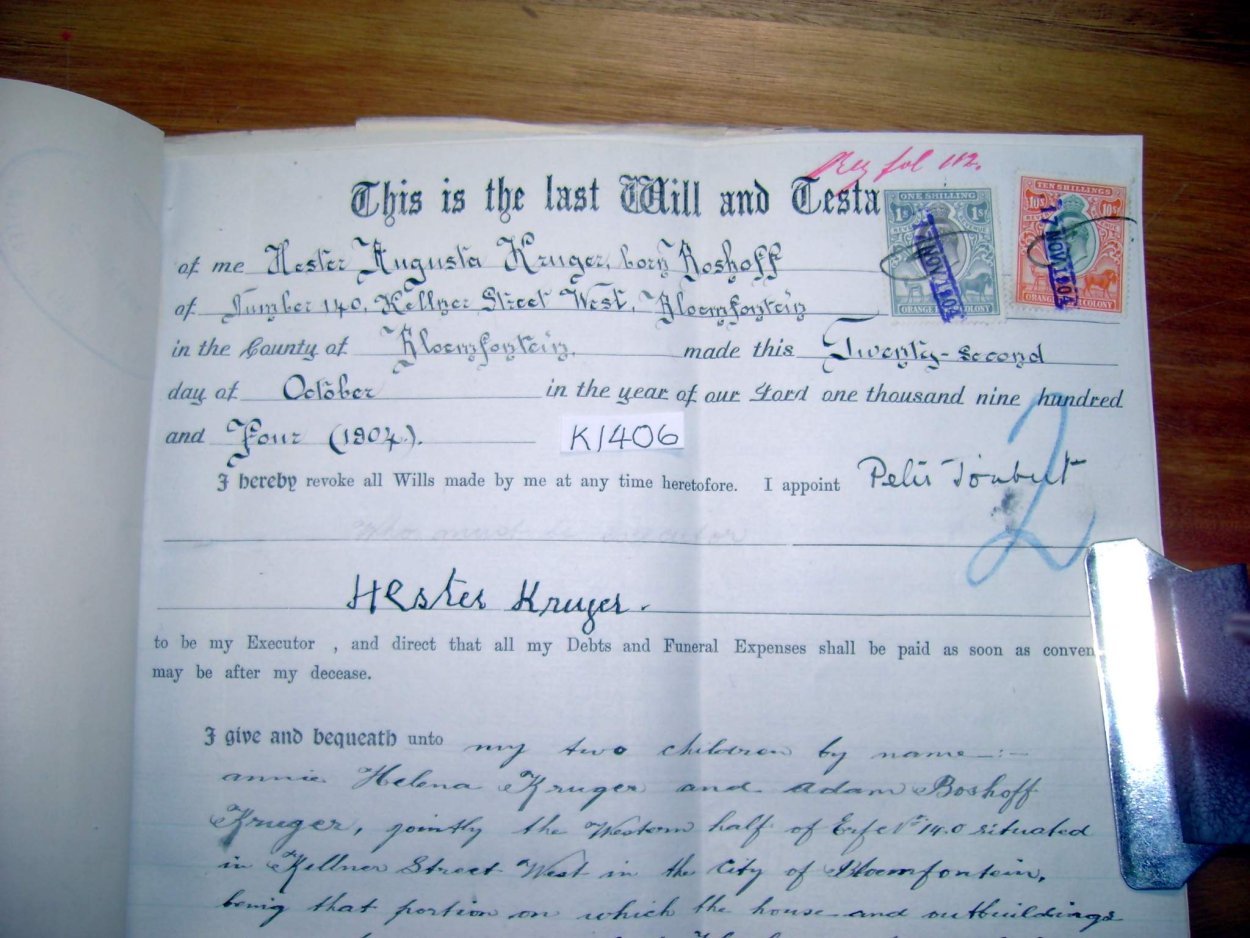 Reg fol 112.
This is the last Will and Testa
ONE SHILLING
1s 1s
ORANGE COLONY
17 NOV 1904
TEN SHILLINGS
10s 10s
ORANGE COLONY
17 NOV 1904
of me Hester Augusta Kruger, born Boshoff
of Number 140, Kellner Street West, Bloemfontein
in the County of Bloemfontein, made this Twenty-second
day of October in the year of our Lord one thousand nine hundred
and Four (1904).
K1406
2
I hereby revoke all Wills made by me at any time heretofore. I appoint Joubert
Who must be executor
Hester Kruger.
to be my Executor , and direct that all my Debts and Funeral Expenses shall be paid as soon as conven
may be after my decease.
I give and bequeath unto my two children by name :-
annie Helena Kruger and Adam Boshoff
Kruger, jointly the Western half of Erf No 140 situated
in Kellner Street West in the City of Bloemfontein,
being that portion on which the house and outbuildings